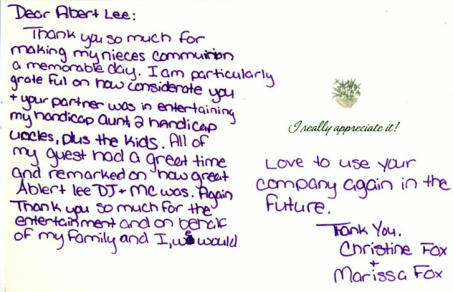 Dear Abert Lee:
Thank you so much for
making my nieces communion
a memorable day. I am particularly
grate ful on how considerate you
+ your partner was in entertaining
my handicap aunt, 2 handicap
uncles, plus the kids. All of
my guest had a great time
and remarked on how great
Ablert lee DJ + MC was. Again
Thank you so much for the
entertainment and on behalf
of my family and I, we would
I really appreciate it!
Love to use your
company again in the
future.
Thank You.
Christine Fox
+
Marissa Fox